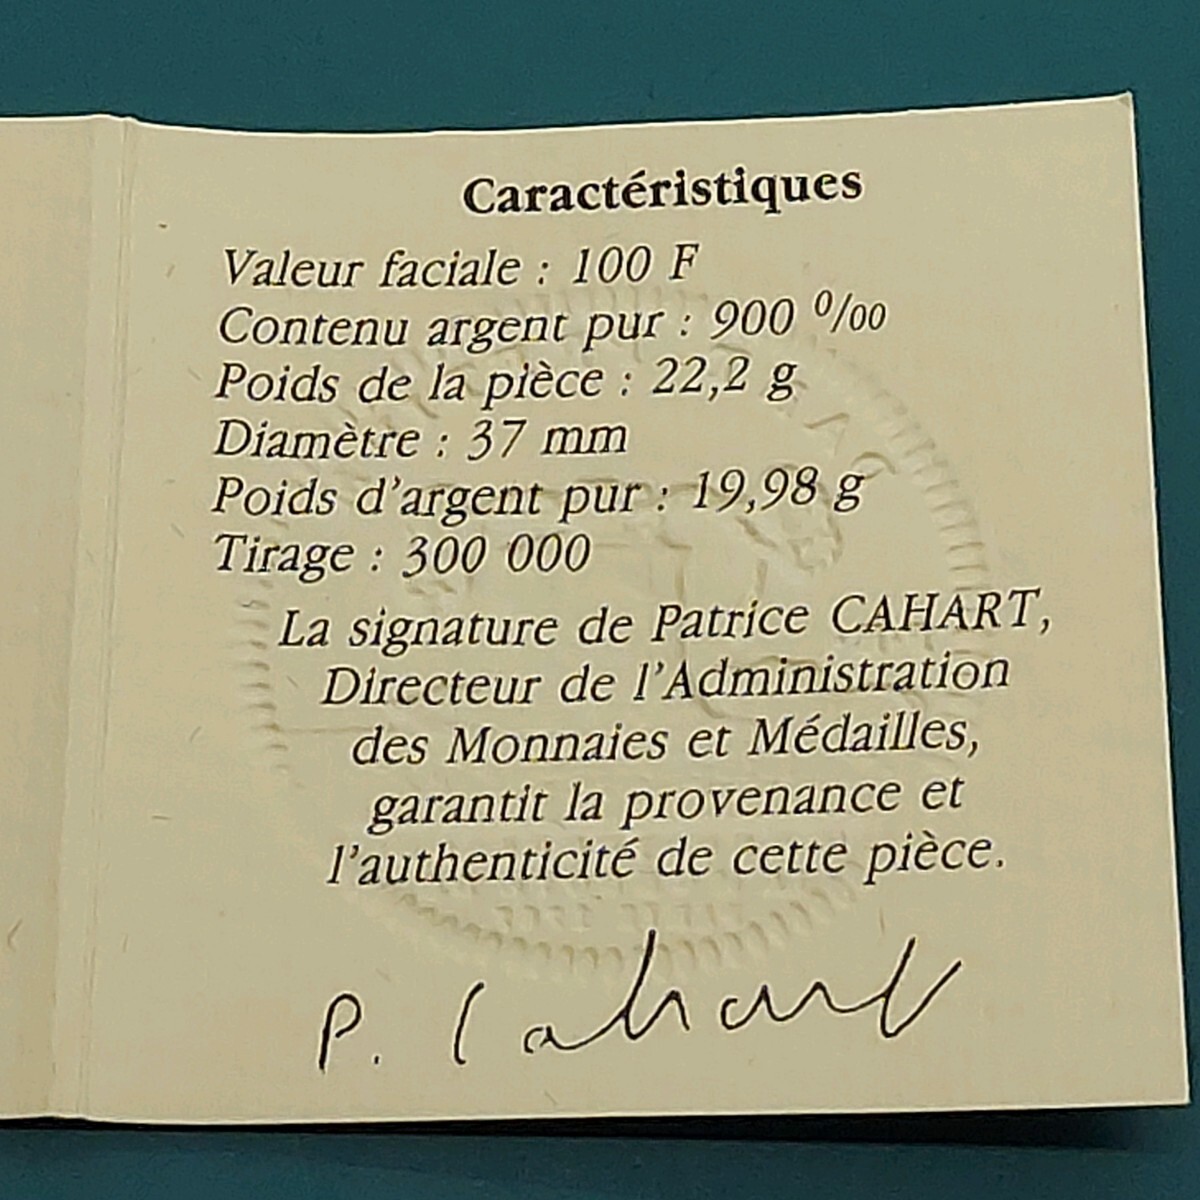 Caractéristiques
Valeur faciale : 100 F
Contenu argent pur : 900 ‰
Poids de la pièce : 22,2 g
Diamètre : 37 mm
Poids d'argent pur : 19,98 g
Tirage : 300 000
La signature de Patrice CAHART,
Directeur de l'Administration
des Monnaies et Médailles,
garantit la provenance et
l'authenticité de cette pièce.
P. Cahart